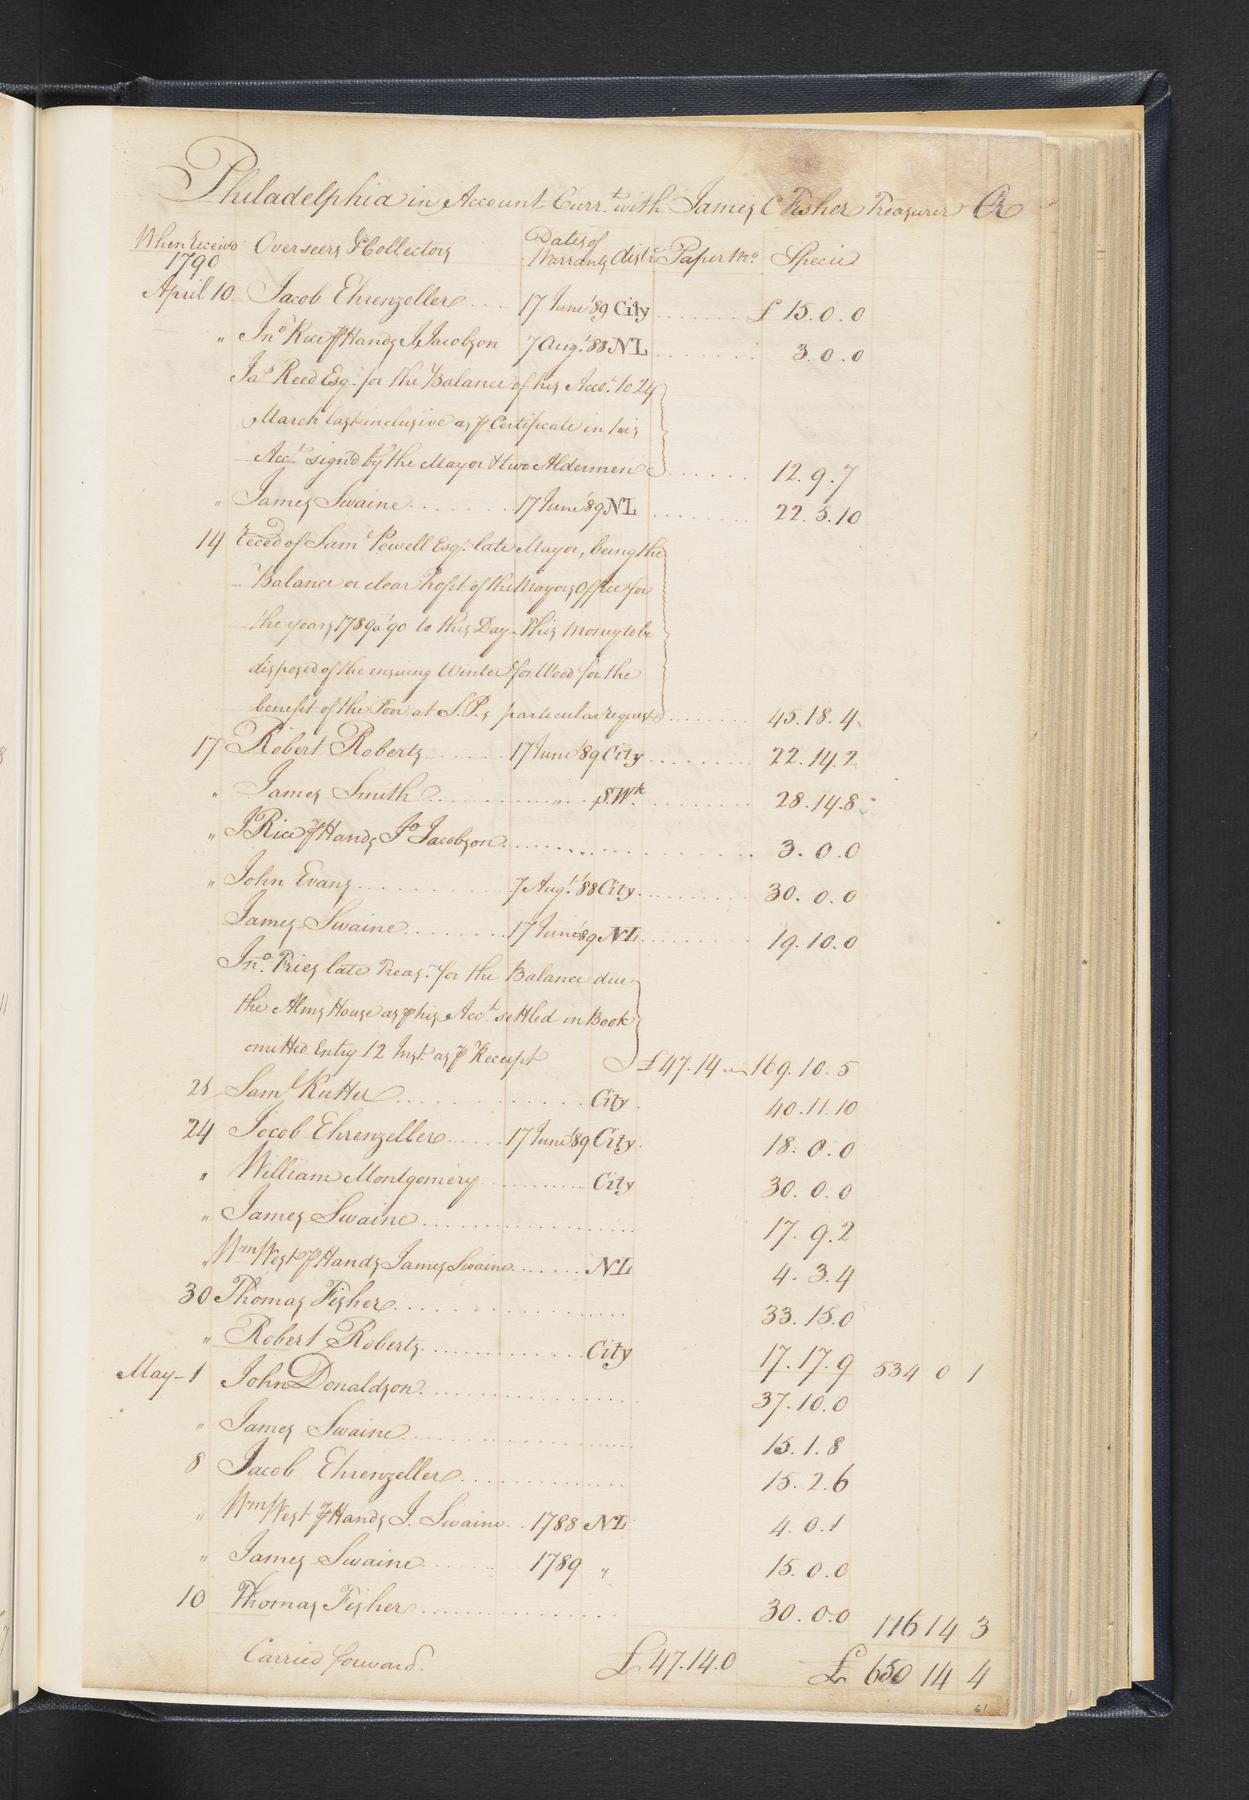 Philadelphia in Account Currt. with James C Fisher Treasurer Cr
When Receivd Overseers & Collectors Dates of Warrants distc. Paper Mo. Specie
1790
April 10 Jacob Ehrenzeller 17 June '89 City £ 15.0.0
" Jno. Rice ⅌ Hands J. Jacobson 7 Aug. '88 NL 3.0.0
Jas. Reed Esqr. for the Balance of his Acct. to 24
March last inclusive as ⅌ Certificate in his
Acct. signd by the Mayor & two Aldermen 12.9.7
" James Swaine 17 June '89 NL 22.5.10
14 Reced of Saml. Powell Esqr. late Mayor, being the
Balance or clear Profit of the Mayors Office for
the years 1789 a '90 to this Day - This Money to be
disposed of the ensuing Winter for Wood for the
benefit of the Poor at S.P.s particular request 45.18.4
17 Robert Roberts 17 June '89 City 22.14.2
" James Smith " S.Wk. 28.14.8
" J Rice ⅌ Hands Jo. Jacobson 3.0.0
" John Evans 7 Augt. '88 City 30.0.0
James Swaine 17 June '89 NL 19.10.0
Jno. Fries late Treasr. for the Balance due
the Alms House as ⅌ his Acct. settled in Book
omitted Entry 12 Inst. as ⅌ Receipt £47.14 169.10.5
21 Saml. Rutter City 40.11.10
24 Jocob Ehrenzeller 17 June '89 City 18.0.0
" William Montgomery City 30.0.0
" James Swaine 17.9.2
" Wm West ⅌ Hands James Swaine NL 4.3.4
30 Thomas Fisher 33.15.0
" Robert Roberts City 17.17.9 534 0 1
May - 1 John Donaldson 37.10.0
" James Swaine 15.1.8
8 Jacob Ehrenzeller 15.2.6
" Wm West ⅌ Hands J. Swaine 1788 NL 4.0.1
" James Swaine 1789 " 15.0.0
10 Thomas Fisher 30.0.0 116 14 3
Carried forward. £47.14.0 £ 650 14 4
61